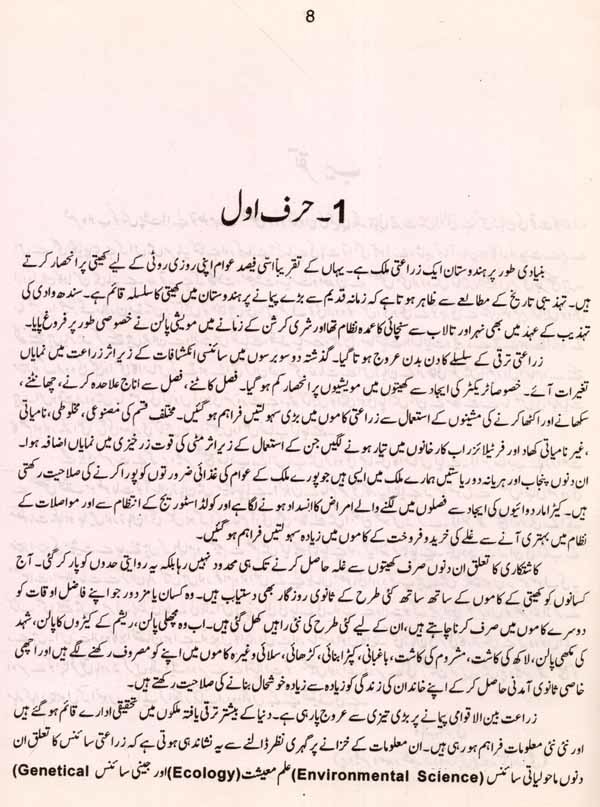 8
1۔ حرف اول
بنیادی طور پر ہندوستان ایک زراعتی ملک ہے۔ یہاں کے تقریباً اسی فیصد عوام اپنی روزی روٹی کے لیے کھیتی پر انحصار کرتے
ہیں۔ تہذیبی تاریخ کے مطالعے سے ظاہر ہوتا ہے کہ زمانہ قدیم سے بڑے پیمانے پر ہندوستان میں کھیتی کا سلسلہ قائم ہے۔ سندھ وادی کی
تہذیب کے عہد میں بھی نہر اور تالاب سے سنچائی کا عمدہ نظام تھا اور شری کرشن کے زمانے میں مویشی پالن نے خصوصی طور پر فروغ پایا۔
زراعتی ترقی کے سلسلے کا دن بدن عروج ہوتا گیا۔ گذشتہ دو سو برسوں میں سائنسی انکشافات کے زیر اثر زراعت میں نمایاں
تغیرات آئے۔ خصوصاً ٹریکٹر کی ایجاد سے کھیتوں میں مویشیوں پر انحصار کم ہو گیا۔ فصل کاٹنے، فصل سے اناج علاحدہ کرنے، چھانٹنے،
سکھانے اور اکٹھا کرنے کی مشینوں کے استعمال سے زراعتی کاموں میں بڑی سہولتیں فراہم ہو گئیں۔ مختلف قسم کی مصنوعی، مخلوطی، نامیاتی
،غیر نامیاتی کھاد اور فرٹیلائزر اب کارخانوں میں تیار ہونے لگیں جن کے استعمال کے زیر اثر مٹی کی قوت زرخیزی میں نمایاں اضافہ ہوا۔
ان دنوں پنجاب اور ہریانہ دو ریاستیں ہمارے ملک میں ایسی ہیں جو پورے ملک کے عوام کی غذائی ضرورتوں کو پورا کرنے کی صلاحیت رکھتی
ہیں۔ کیڑا مار دوائیوں کی ایجاد سے فصلوں میں لگنے والے امراض کا انسداد ہونے لگا ہے اور کولڈ اسٹوریج کے انتظام سے اور مواصلات کے
نظام میں بہتری آنے سے غلے کی خرید و فروخت کے کاموں میں زیادہ سہولتیں فراہم ہو گئیں۔
کاشتکاری کا تعلق ان دنوں صرف کھیتوں سے غلہ حاصل کرنے تک ہی محدود نہیں رہا بلکہ یہ روایتی حدوں کو پار کر گئی۔ آج
کسانوں کو کھیتی کے کاموں کے ساتھ ساتھ کئی طرح کے ثانوی روزگار بھی دستیاب ہیں۔ وہ کسان یا مزدور جو اپنے فاضل اوقات کو
دوسرے کاموں میں صرف کرنا چاہتے ہیں، ان کے لیے کئی طرح کی نئی راہیں کھل گئی ہیں۔ اب وہ مچھلی پالن، ریشم کے کیڑوں کا پالن، شہد
کی مکھی پالن، لاکھ کی کاشت، مشروم کی کاشت، باغبانی، کپڑا بنائی، کڑھائی، سلائی وغیرہ کاموں میں اپنے کو مصروف رکھنے لگے ہیں اور اچھی
خاصی ثانوی آمدنی حاصل کر کے اپنے خاندان کی زندگی کو زیادہ سے زیادہ خوشحال بنانے کی صلاحیت رکھتے ہیں۔
زراعت بین الاقوامی پیمانے پر بڑی تیزی سے عروج پا رہی ہے۔ دنیا کے بیشتر ترقی یافتہ ملکوں میں تحقیقی ادارے قائم ہو گئے ہیں
اور نئی نئی معلومات فراہم ہو رہی ہیں۔ ان معلومات کے خزانے پر گہری نظر ڈالنے سے یہ نشاندہی ہوتی ہے کہ زراعتی سائنس کا تعلق ان
دنوں ماحولیاتی سائنس (Environmental Science) علم معیشت (Ecology) اور جینی سائنس (Genetical